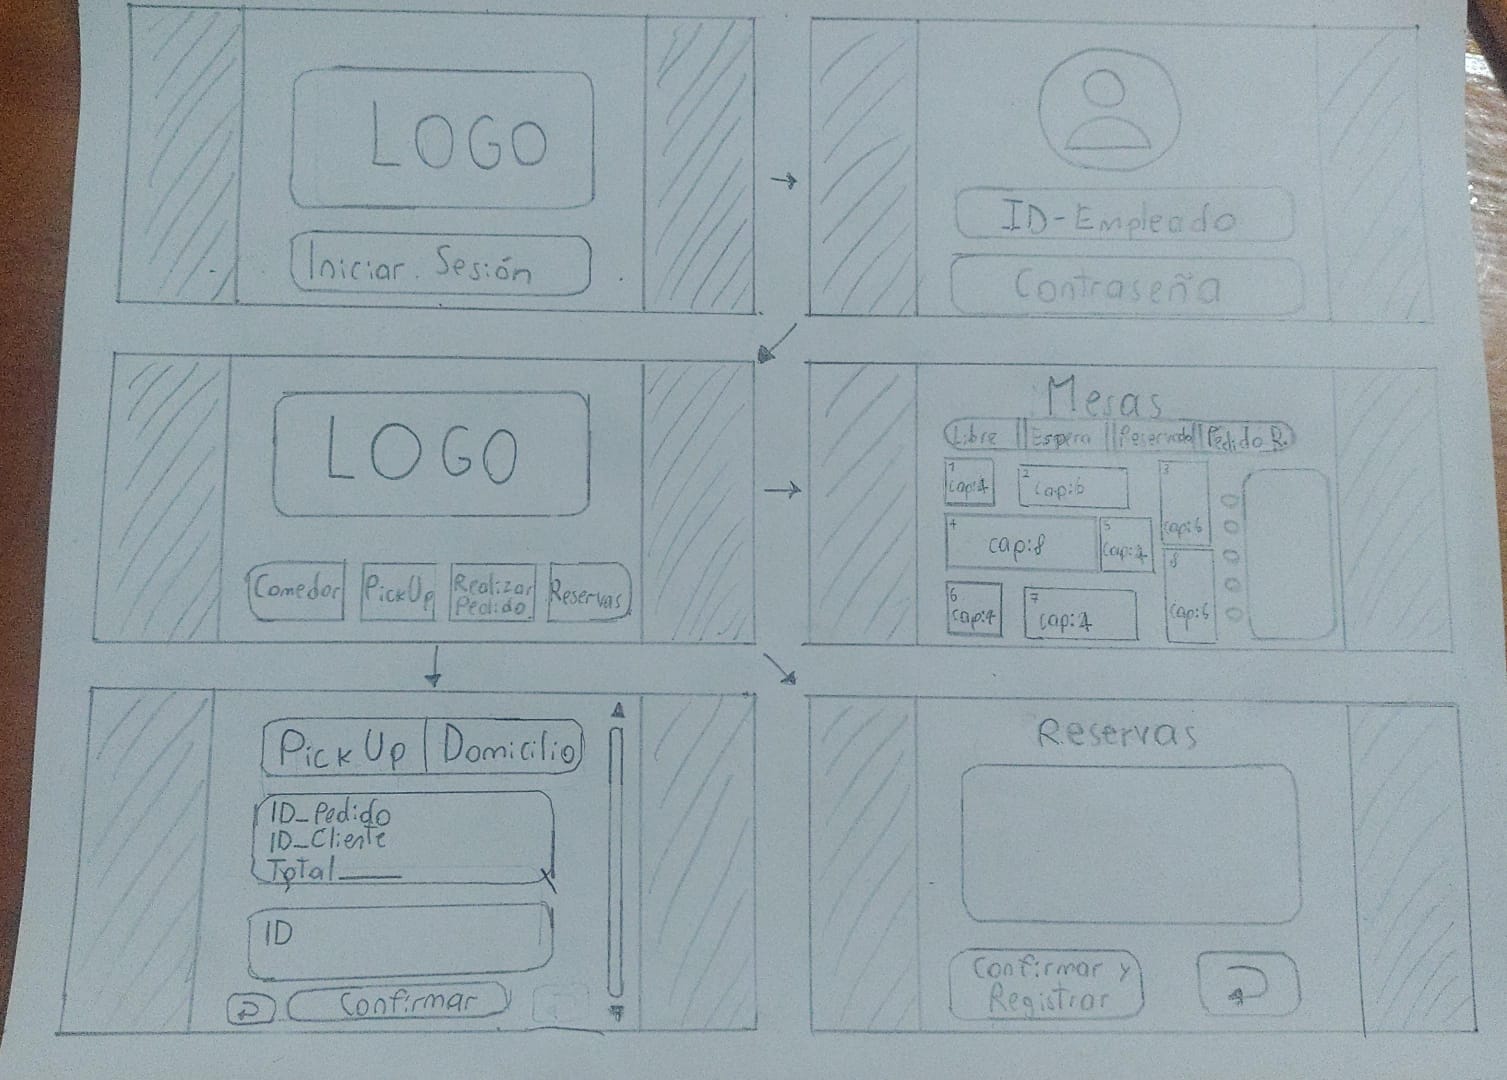 LOGO
Iniciar. Sesión
ID-Empleado
Contraseña
LOGO
Comedor PickUp Realizar Pedido Reservas
Mesas
Libre Espera Reservado Pedido R.
1 cap:4
2 cap:6
3 cap:6
4 cap:8
5 cap:4
6 cap:4
7 cap:4
8 cap:6
PickUp Domicilio
ID_Pedido
ID_Cliente
Total
ID
Confirmar
Reservas
Confirmar y
Registrar